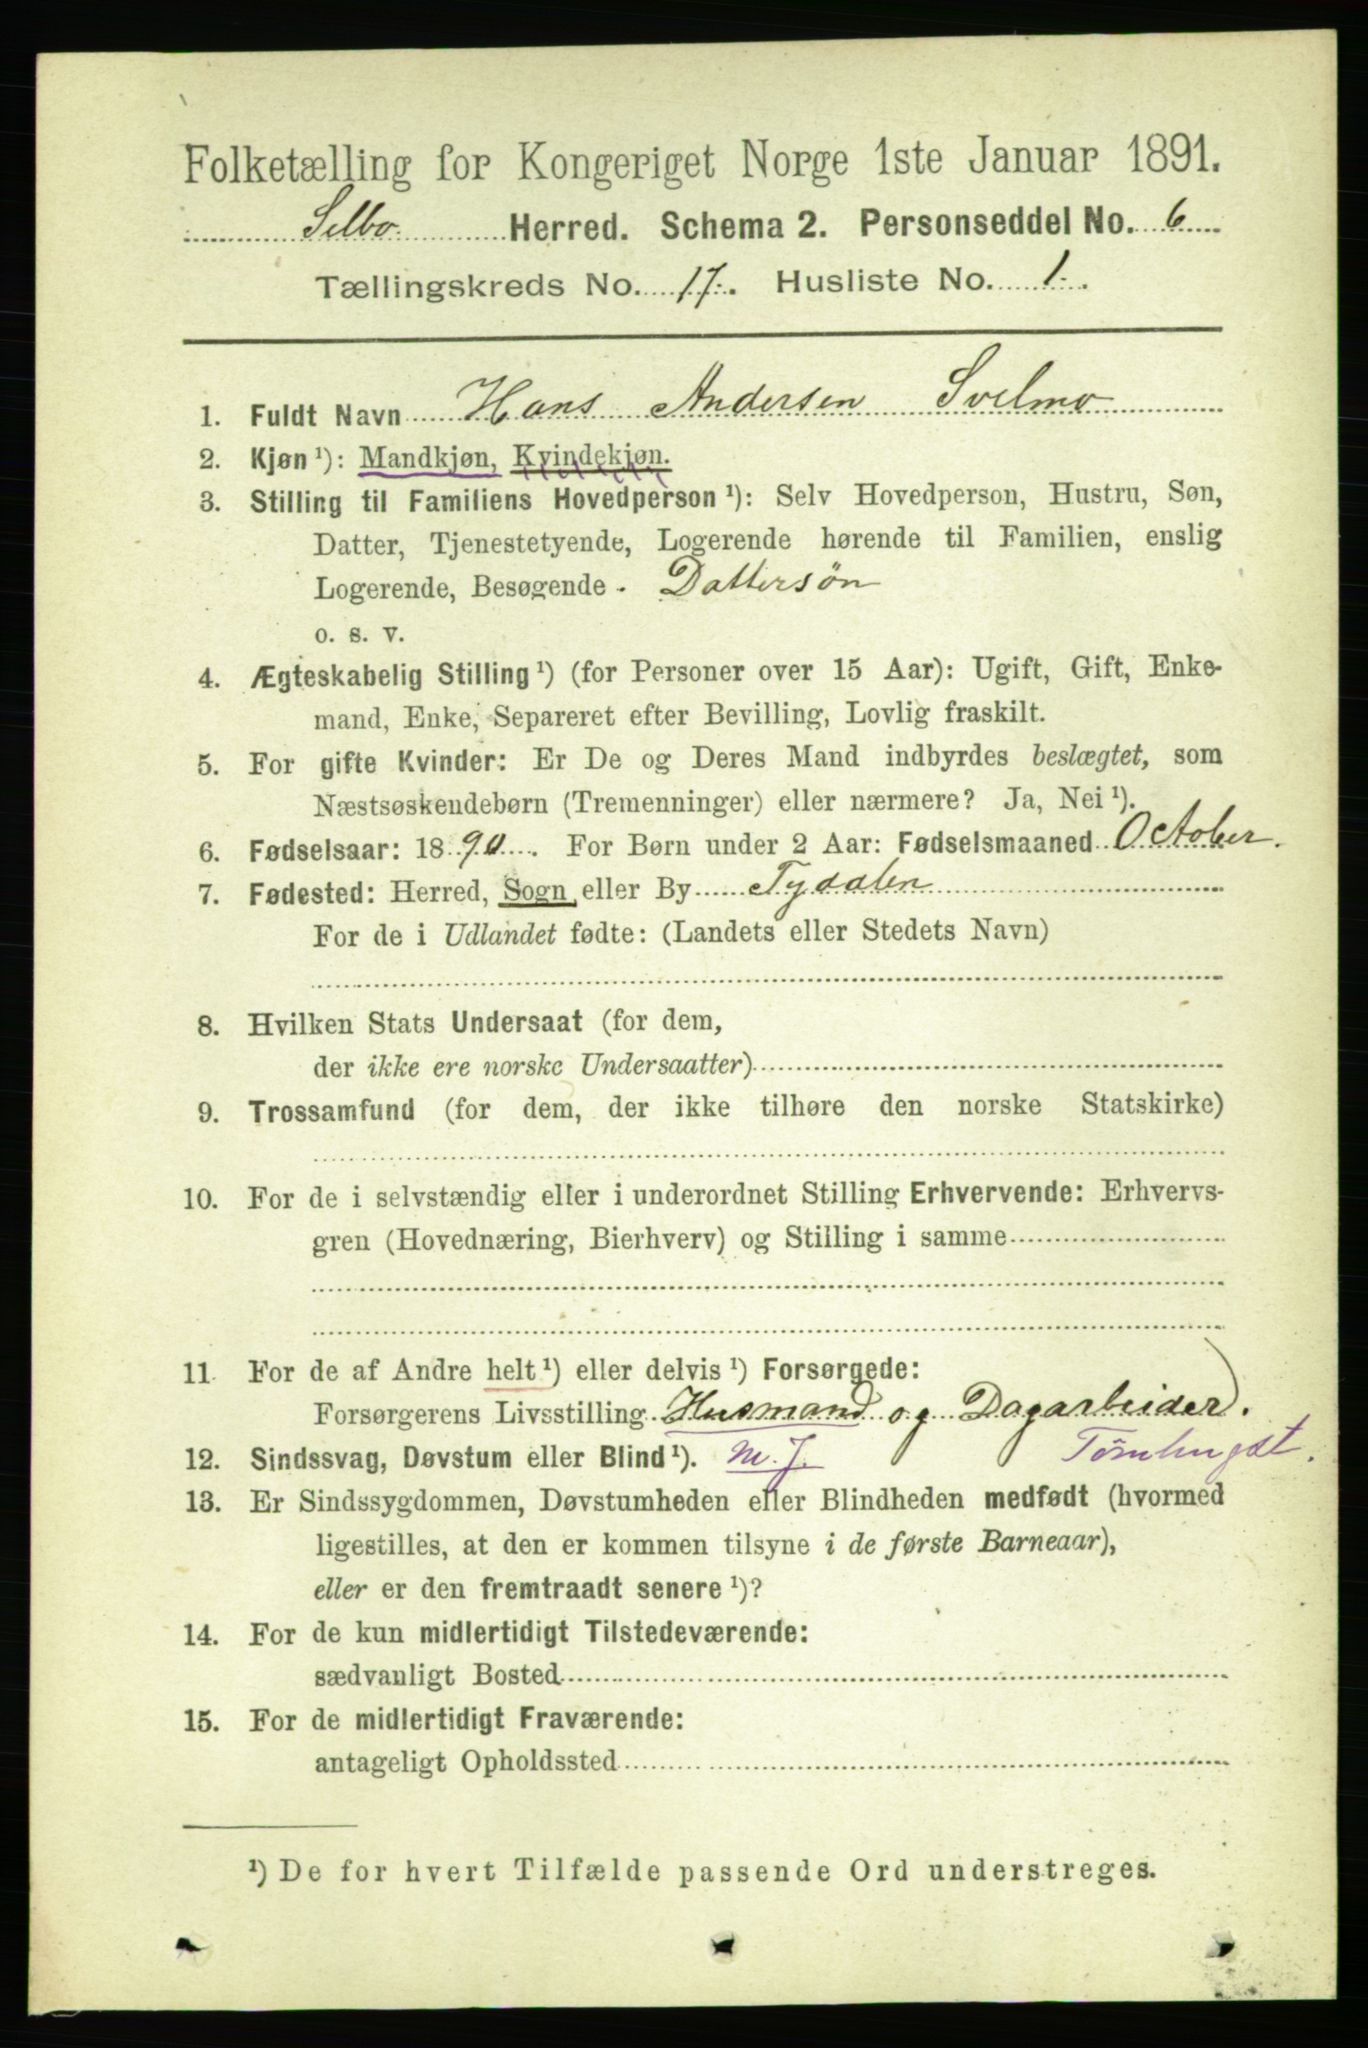 Folketælling for Kongeriget Norge 1ste Januar 1891.
Selbo Herred. Schema 2. Personseddel No. 6
Tællingskreds No. 17. Husliste No. 1.
1. Fuldt Navn Hans Andersen Svelmo
2. Kjøn ¹): Mandkjøn, Kvindekjøn.
3. Stilling til Familiens Hovedperson ¹): Selv Hovedperson, Hustru, Søn,
Datter, Tjenestetyende, Logerende hørende til Familien, enslig
Logerende, Besøgende. Dattersøn
o. s. v.
4. Ægteskabelig Stilling ¹) (for Personer over 15 Aar): Ugift, Gift, Enke-
mand, Enke, Separeret efter Bevilling, Lovlig fraskilt.
5. For gifte Kvinder: Er De og Deres Mand indbyrdes beslægtet, som
Næstsøskendebørn (Tremenninger) eller nærmere? Ja, Nei ¹).
6. Fødselsaar: 1890. For Børn under 2 Aar: Fødselsmaaned October.
7. Fødested: Herred, Sogn, eller By Tydalen
For de i Udlandet fødte: (Landets eller Stedets Navn)
8. Hvilken Stats Undersaat (for dem,
der ikke ere norske Undersaatter)
9. Trossamfund (for dem, der ikke tilhøre den norske Statskirke)
10. For de i selvstændig eller i underordnet Stilling Erhvervende: Erhvervs-
gren (Hovednæring, Bierhverv) og Stilling i samme
11. For de af Andre helt ¹) eller delvis ¹) Forsørgede:
Forsørgerens Livsstilling Husmand og Dagarbeider).
12. Sindssvag, Døvstum eller Blind ¹). m. J.
13. Er Sindssygdommen, Døvstumheden eller Blindheden medfødt (hvormed
ligestilles, at den er kommen tilsyne i de første Barneaar),
eller er den fremtraadt senere ¹)?
14. For de kun midlertidigt Tilstedeværende:
sædvanligt Bosted
15. For de midlertidigt Fraværende:
antageligt Opholdssted
¹) De for hvert Tilfælde passende Ord understreges.